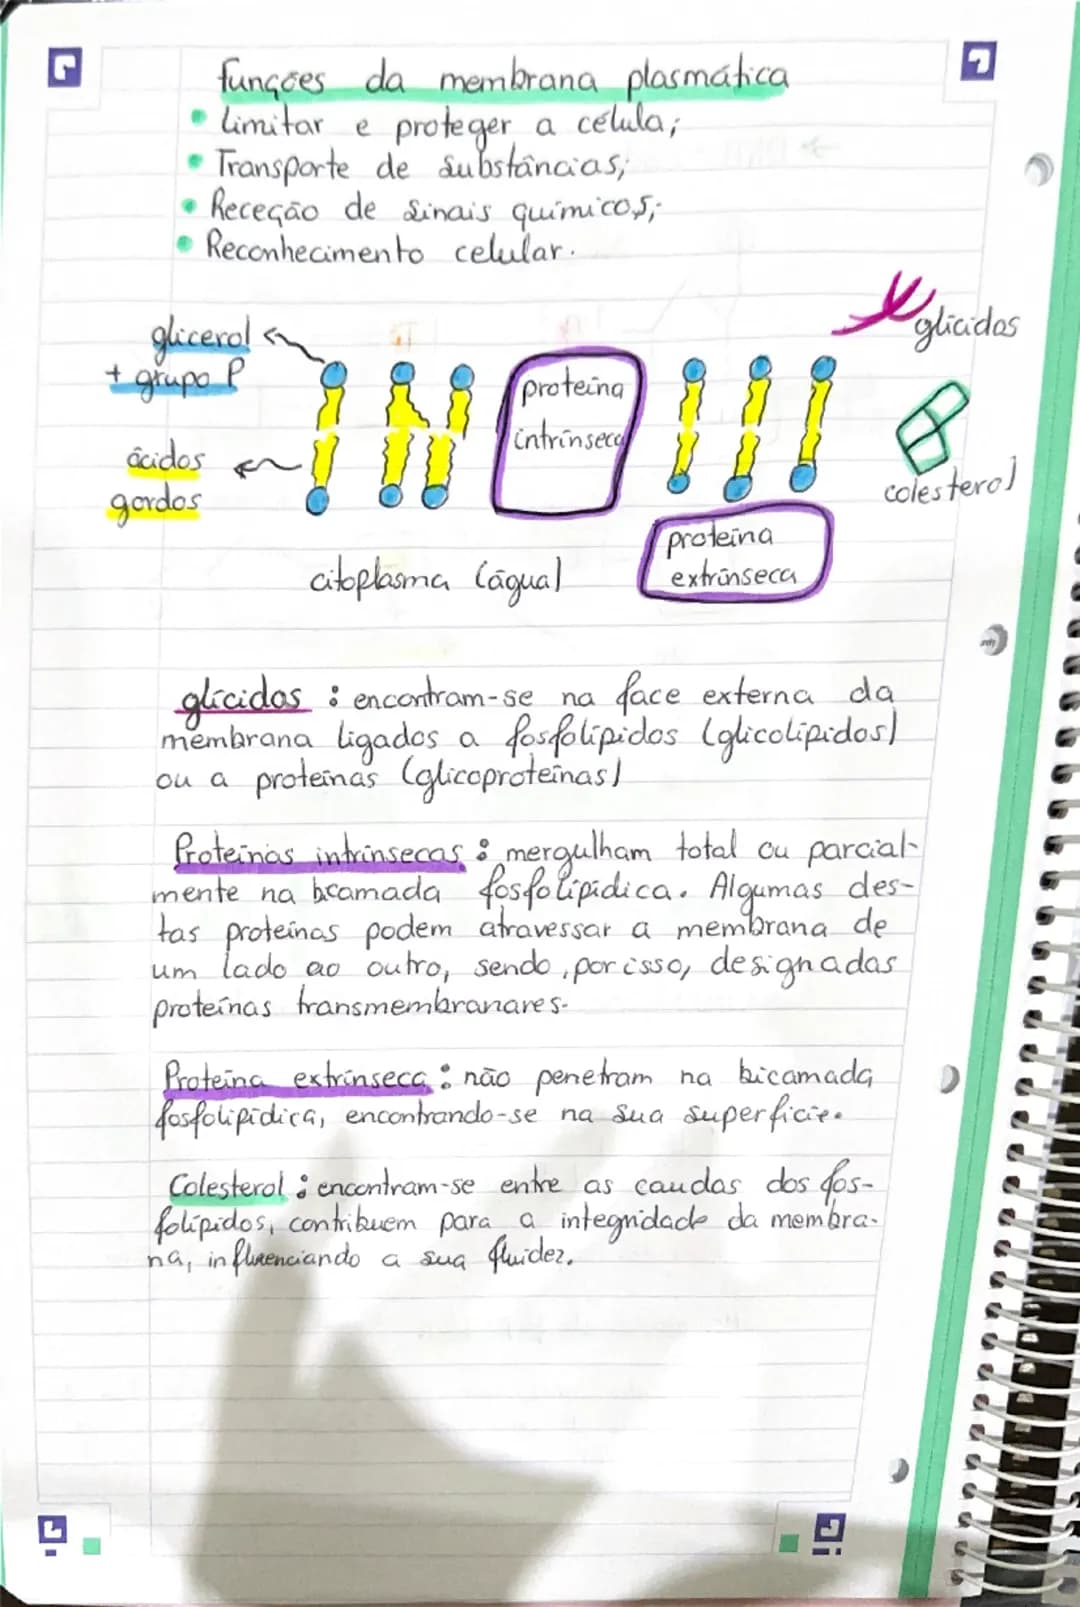 funções da membrana plasmática
• Limitar e proteger a célula;
• Transporte de substâncias;
• Receção de sinais químicos;
• Reconhecimento celular.
glicerol
+ grupo P
ácidos
gordos
proteína
intrínseca
glícidos
colesterol
proteína
extrínseca
citoplasma (água)
glícidos : encontram-se na face externa da
membrana ligados a fosfolípidos (glicolípidos)
ou a proteínas (glicoproteínas)
Proteínas intrínsecas : mergulham total ou parcial-
mente na bicamada fosfolipídica. Algumas des-
tas proteínas podem atravessar a membrana de
um lado ao outro, sendo, por isso, designadas
proteínas transmembranares.
Proteína extrínseca : não penetram na bicamada
fosfolipídica, encontrando-se na sua superfície.
Colesterol : encontram-se entre as caudas dos fos-
folípidos, contribuem para a integridade da membra-
na, influenciando a sua fluidez.